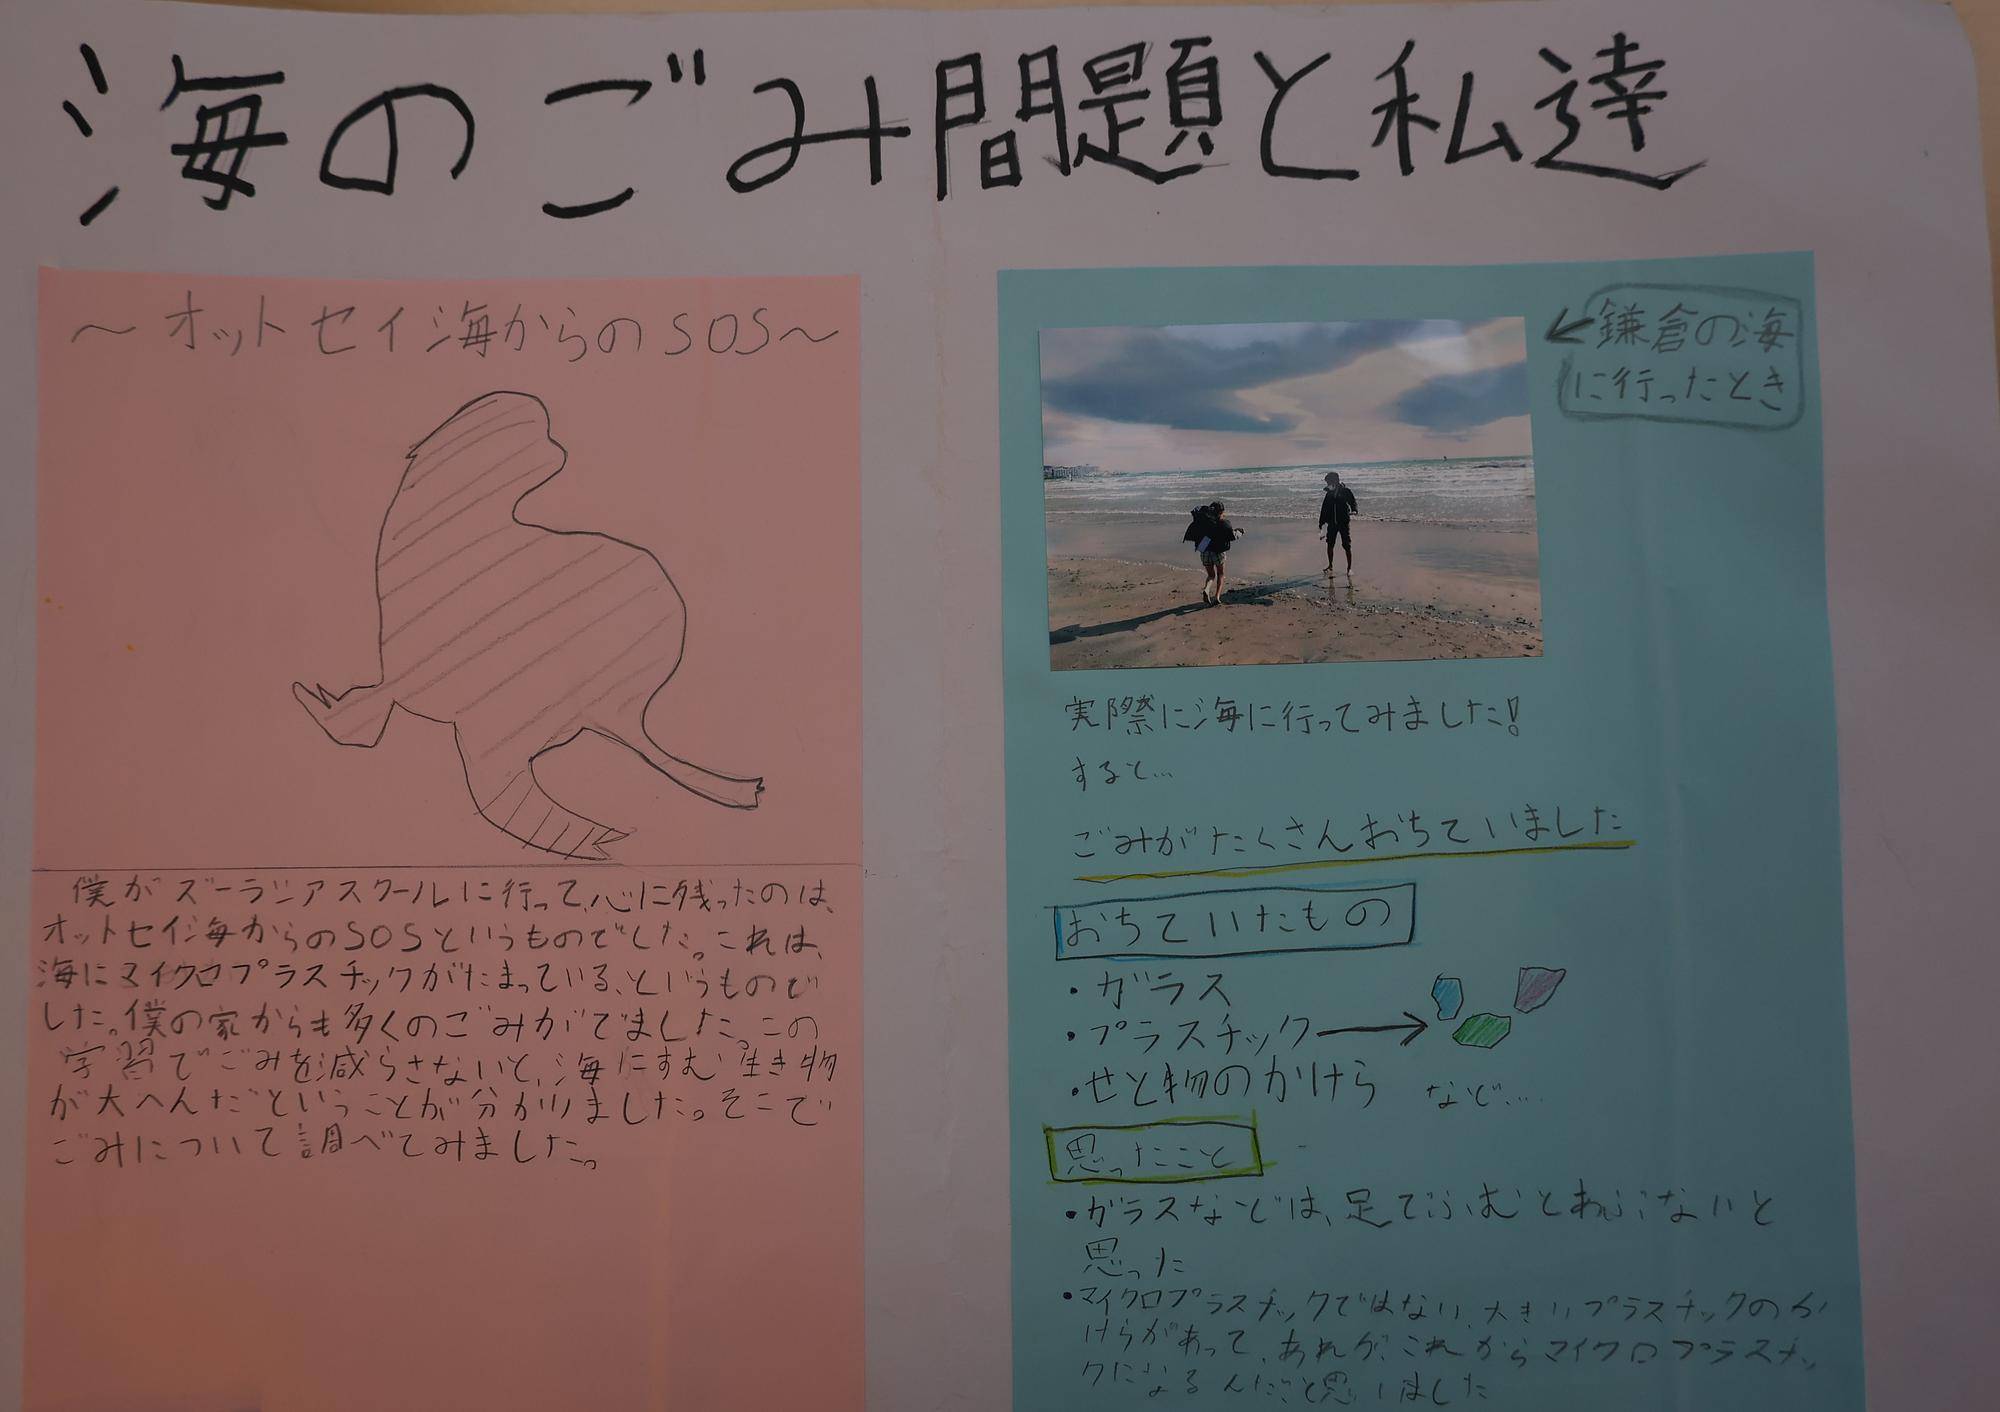 海のごみ問題と私達
〜オットセイ海からのSOS〜
僕がズーラシアスクールに行って、心に残ったのは、
オットセイ海からのSOSというものでした。これは、
海にマイクロプラスチックがたまっている、というもので
した。僕の家からも多くのごみがでました。この
学習でごみを減らさないと、海にすむ生き物
が大へんだということが分かりました。そこで
ごみについて調べてみました。
←鎌倉の海
に行ったとき
実際に海に行ってみました!
すると…
ごみがたくさんおちていました
おちていたもの
・ガラス
・プラスチック
・せと物のかけら など…
思ったこと
・ガラスなどは、足でふむとあぶないと
思った
・マイクロプラスチックではない、大きいプラスチックのか
けらがあって、あれが、これからマイクロプラスチッ
クになるんだと思いました